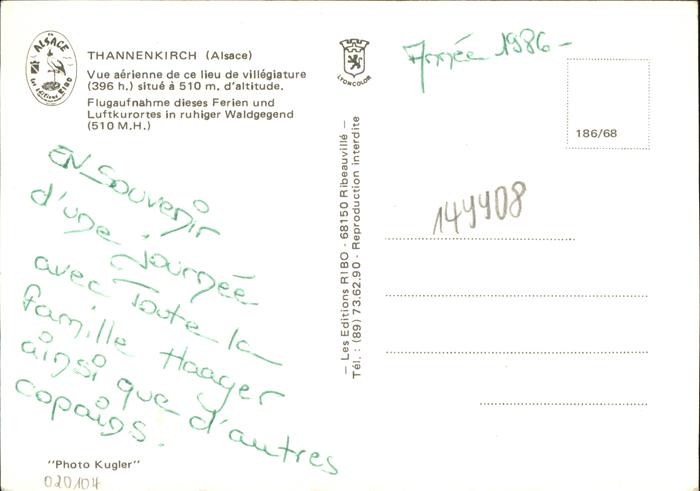 ALSACE
Les éditions RIBO
THANNENKIRCH (Alsace)
Vue aérienne de ce lieu de villégiature
(396 h.) situé à 510 m. d'altitude.
Flugaufnahme dieses Ferien und
Luftkurortes in ruhiger Waldgegend
(510 M.H.)
EN Souvenir
d'une journée
avec Toute la
famille Haager
ainsi que d'autres
copains.
"Photo Kugler"
020104
LYONCOLOR
— Les Editions RIBO - 68150 Ribeauvillé —
Tél. : (89) 73.62.90 - Reproduction interdite
Année 1986 -
186/68
144408